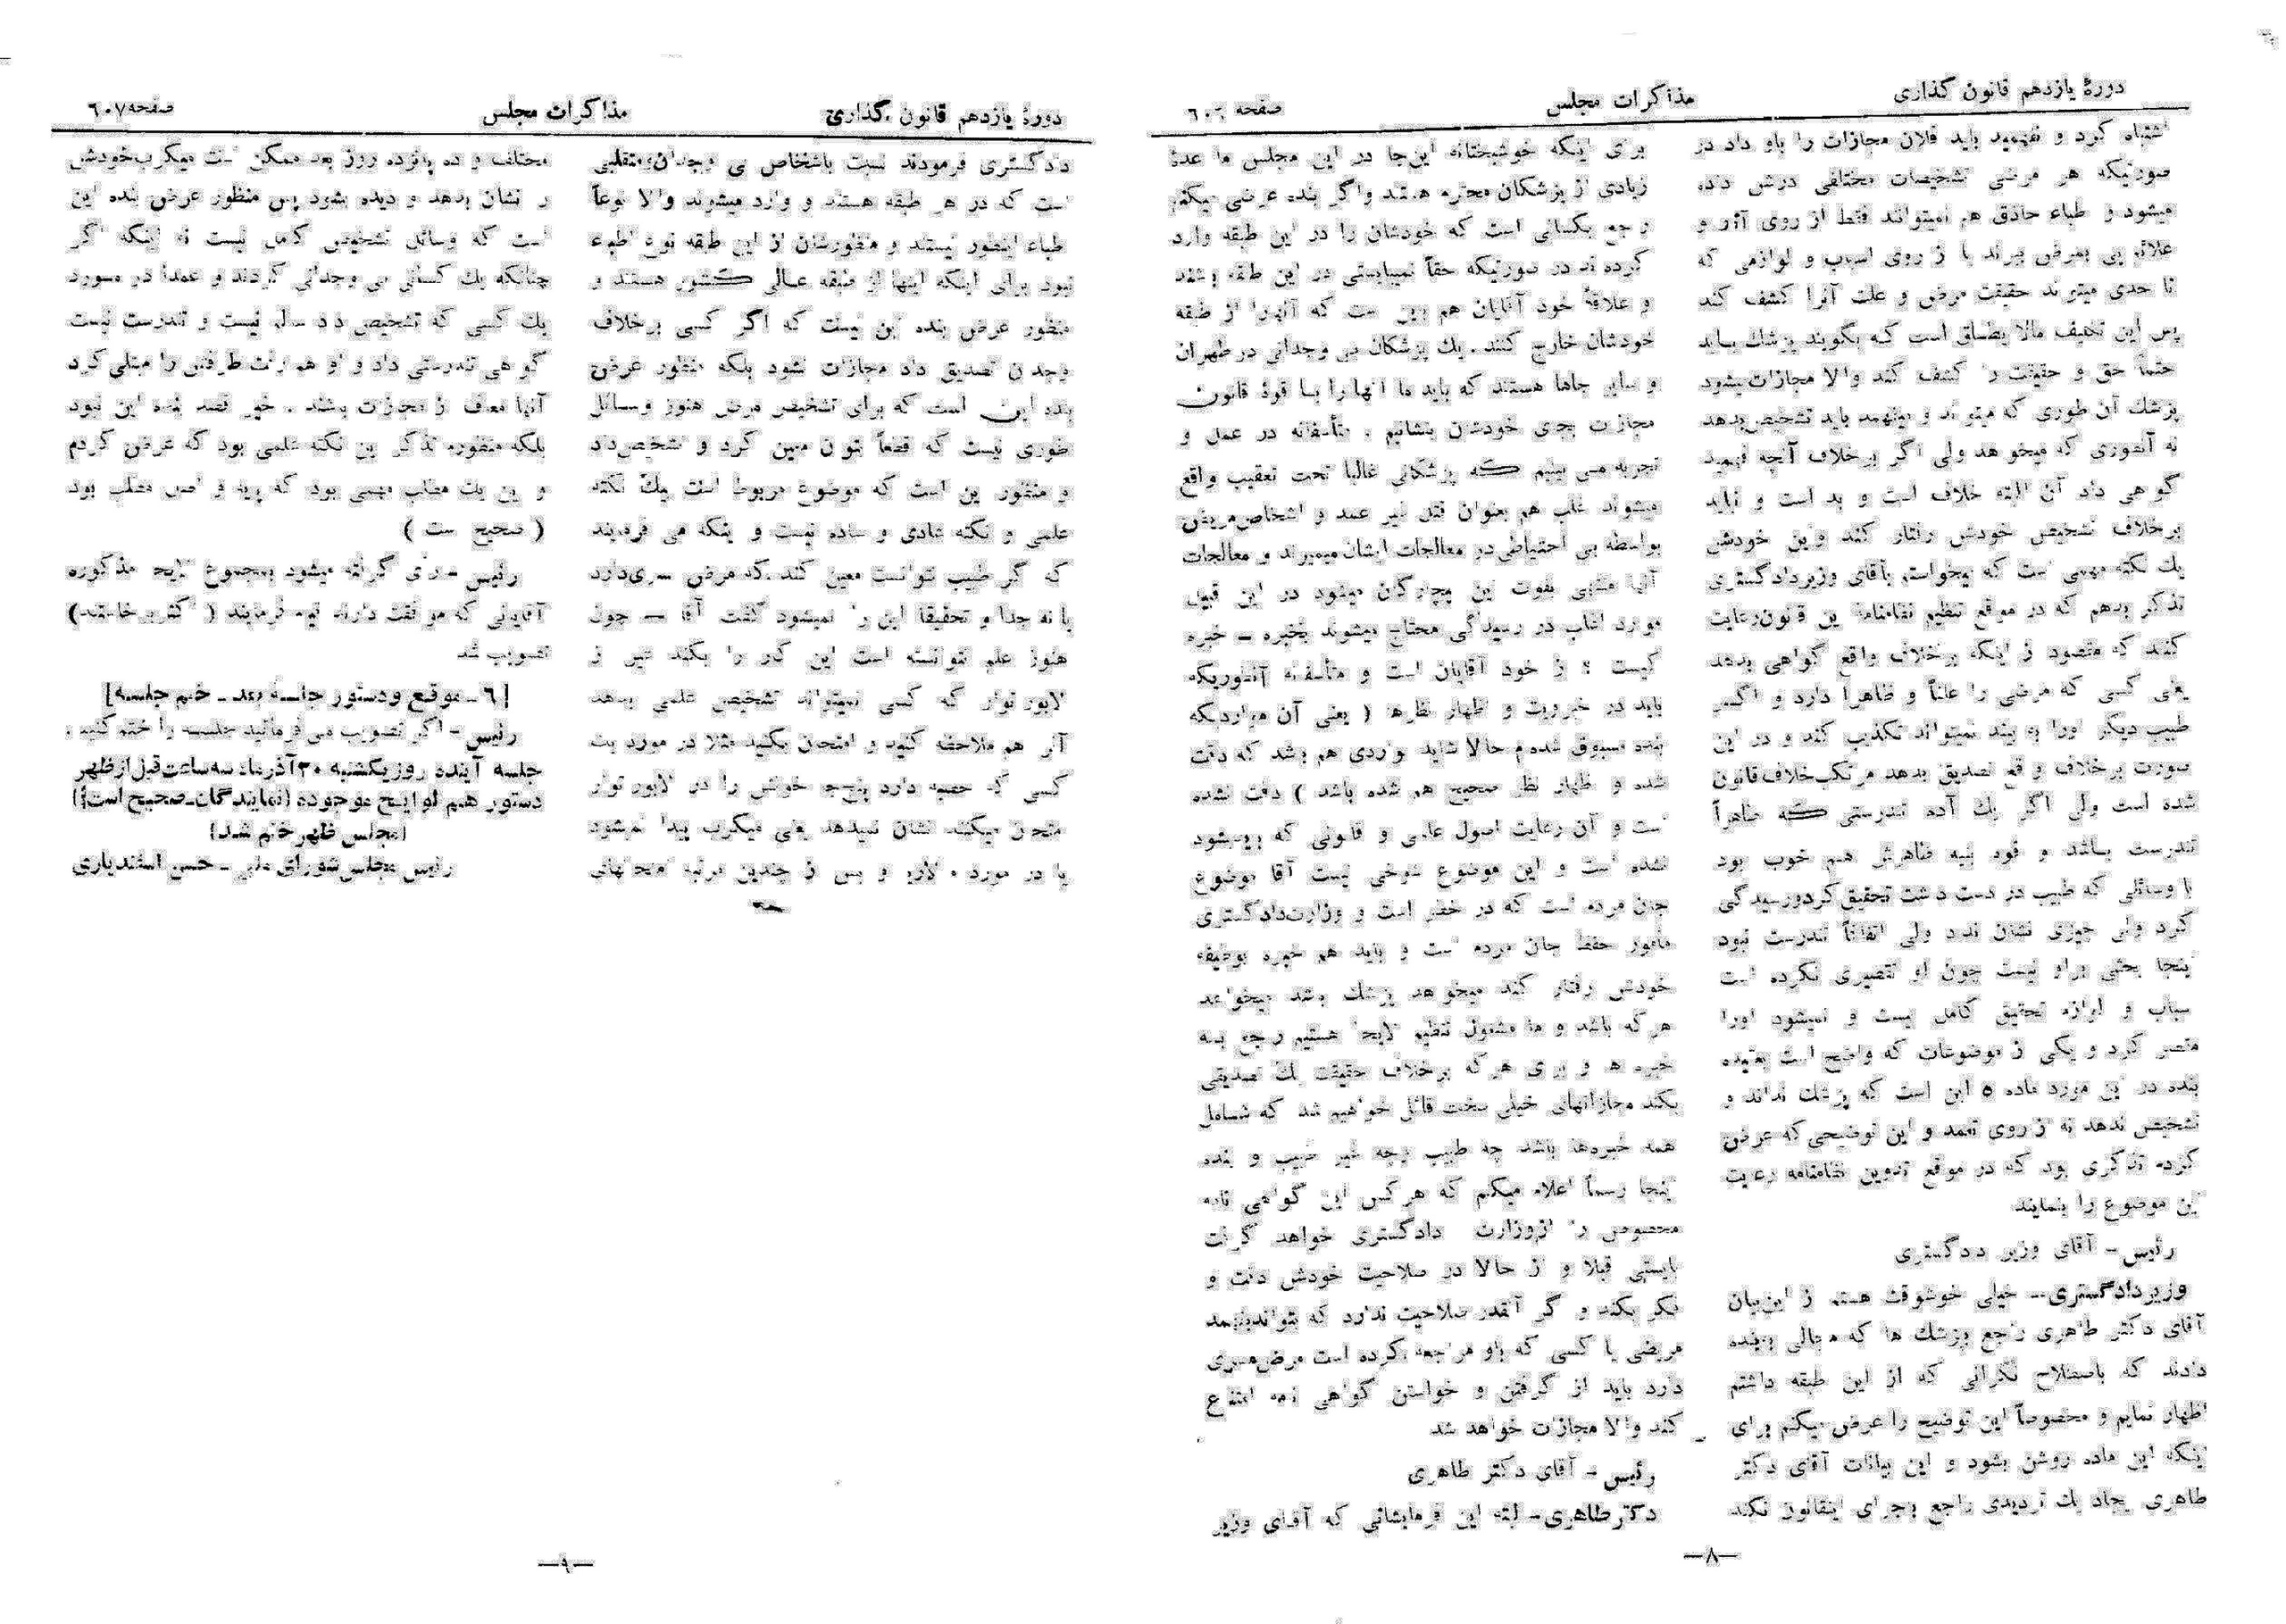 دورهٔ یازدهم قانون گذاری
مذاکرات مجلس
صفحه
اشتباه کرد و نفهمید باید فلان مجازات را باو داد در
صورتیکه هر مرضی تشخیصات مختلفی درش داده
میشود و اطباء حاذق هم نمیتوانند فقط از روی آثار و
علائم پی بمرض ببرند یا از روی اسباب و لوازمی که
تا حدی میتوانند حقیقت مرض و علت آنرا کشف کند
پس این تکلیف مالایطاق است که بگویند پزشك باید
حتماً حق و حقیقت را کشف کند والا مجازات میشود
پزشك آن طوری که میتواند و میفهمد باید تشخیص بدهد
نه آنطوری که میخواهد ولی اگر برخلاف آنچه فهمید
گواهی داد آن البته خلاف است و بد است و نباید
برخلاف تشخیص خودش رفتار کند و این خودش
یك نکته مهمی است که میخواستم بآقای وزیردادگستری
تذکر بدهم که در موقع تنظیم نظامنامه این قانون رعایت
کنند که مقصود از اینکه برخلاف واقع گواهی بدهد
یعنی کسی که مرضی را علناً و ظاهراً دارد و اگر
طبیب دیگر اورا به بیند نمیتواند تکذیب کند و در این
صورت برخلاف واقع تصدیق بدهد مرتکب خلاف قانون
شده است ولی اگر یك آدم تندرستی که ظاهراً
تندرست باشد و قوه بنیه ظاهرش هم خوب بود
با وسائلی که طبیب در دست داشت تحقیق کرد و رسیدگی
کرد ولی چیزی نشان نداد ولی اتفاقاً تندرست نبود
اینجا بحثی براو نیست چون او تقصیری نکرده است
اسباب و لوازم تحقیق کامل نیست و نمیشود اورا
مقصر کرد و یکی از موضوعات که واضح است بعقیده
بنده در این مورد ماده ٥ این است که پزشك نداند و
تشخیص ندهد نه از روی تعمد و این توضیحی که عرض
کردم تذکری بود که در موقع تدوین نظامنامه رعایت
این موضوع را بنمایند
رئیس - آقای وزیر دادگستری
وزیر دادگستری - خیلی خوشوقت هستم از این بیان
آقای دکتر طاهری راجع بپزشك ها که مجالی ببنده
دادند که باصطلاح نگرانی که از این طبقه داشتم
اظهار نمایم و مخصوصاً این توضیح را عرض میکنم برای
اینکه این ماده روشن بشود و این بیانات آقای دکتر
طاهری ایجاد یك تردیدی راجع باجرای اینقانون نکند
برای اینکه خوشبختانه این‌جا در این مجلس ما عدهٔ
زیادی از پزشکان محترم هستند و اگر بنده عرضی میکنم
راجع بکسانی است که خودشان را در این طبقه وارد
کرده اند در صورتیکه حقاً نمیبایستی در این طبقه باشند
و علاقهٔ خود آقایان هم براین است که آنهارا از طبقه
خودشان خارج کنند . یك پزشکان بی وجدانی در طهران
و سایر جاها هستند که باید ما آنها را با قوهٔ قانون
مجازات بجای خودشان بنشانیم . متأسفانه در عمل و
تجربه می بینیم که پزشکانی غالباً تحت تعقیب واقع
میشوند اغلب هم بعنوان قتل غیر عمد و اشخاص مریض
بواسطه بی احتیاطی در معالجات ایشان میمیرند و معالجات
آنها منتهی بفوت این بیچارگان میشود در این قبیل
موارد اغلب در رسیدگی محتاج میشوند بخبره - خبره
کیست ؟ از خود آقایان است و متأسفانه آنطوریکه
باید در خبرویت و اظهار نظرها ( یعنی آن مواردیکه
بنده مسبوق شده‌ام حالا شاید مواردی هم باشد که دقت
شده و اظهار نظر صحیح هم شده باشد ) دقت نشده
است و آن رعایت اصول علمی و قانونی که باید بشود
نشده است و این موضوع شوخی نیست آقا موضوع
جان مردم است که در خطر است و وزارت دادگستری
مأمور حفظ جان مردم است و باید هم خبره بوظیفه
خودش رفتار کند میخواهد پزشك باشد میخواهد
هر که باشد و ما مشغول تنظیم لایحهٔ هستیم راجع به
خبره ها و برای هر که برخلاف حقیقت یك تصدیقی
بکند مجازاتهای خیلی سخت قائل خواهیم شد که شامل
همه خبره‌ها باشد چه طبیب و چه غیر طبیب و بنده
اینجا رسماً اعلام میکنم که هر کس این گواهی نامه
مخصوص را از وزارت دادگستری خواهد گرفت
بایستی قبلا و از حالا در صلاحیت خودش دقت و
فکر بکند و اگر آنقدر صلاحیت ندارد که بتواند بفهمد
مریضی یا کسی که باو مراجعه کرده است مرض مسری
دارد باید از گرفتن و خواستن گواهی نامه امتناع
کند والا مجازات خواهد شد
رئیس - آقای دکتر طاهری
دکتر طاهری - البته این فرمایشاتی که آقای وزیر
—٨—
دورهٔ یازدهم قانون گذاری
مذاکرات مجلس
صفحه ٦٠٧
دادگستری فرمودند نسبت باشخاص بی وجدان متقلبی
است که در هر طبقه هستند و وارد میشوند والا نوعاً
اطباء اینطور نیستند و منظورشان از این طبقه نوع اطباء
نبود برای اینکه اینها از طبقه عالی کشور هستند و
منظور عرض بنده این نیست که اگر کسی برخلاف
وجدان تصدیق داد مجازات نشود بلکه منظور عرض
بنده این است که برای تشخیص مرض هنوز وسائل
طوری نیست که قطعاً بتوان معین کرد و تشخیص داد
و منظور این است که موضوع مربوط است بیك نکته
علمی و نکته عادی و ساده نیست و اینکه می فرمایند
که اگر طبیب نتوانست معین کند که مرض مسری دارد
یا نه جداً و تحقیقاً این را نمیشود گفت آقا — چون
هنوز علم نتوانسته است این کار را بکند غیر از
لابوراتوار که کسی نمیتواند تشخیص علمی بدهد
آنرا هم ملاحظه کنید و امتحان بکنید مثلا در مورد یك
کسی که حصبه دارد پنج خونش را در لابوراتوار
امتحان میکنند نشان نمیدهد یعنی میکرب پیدا نمیشود
یا در مورد و پس از چندین مرتبه امتحانهای
مختلف و ده پانزده روز بعد ممکن است میکرب خودش
را نشان بدهد و دیده بشود پس منظور عرض بنده این
است که وسائل تشخیص کامل نیست نه اینکه اگر
چنانکه یك کسانی بی وجدانی کردند و عمداً در مورد
یك کسی که تشخیص داد سالم نیست و تندرست نیست
گواهی تندرستی داد و او هم رفت طرفش را مبتلی کرد
آنها معاف از مجازات باشند . خیر قصد بنده این نبود
بلکه منظورم تذکر این نکته علمی بود که عرض کردم
و این یك مطلب مهمی بود که پایه و اصل مطلب بود
( صحیح است )
رئیس - رأی گرفته میشود بمجموع لایحه مذکوره
آقایانی که موافقت دارند قیام فرمایند ( اکثر برخاستند)
تصویب شد
[ ٦ - موقع و دستور جلسه بعد - ختم جلسه]
رئیس - اگر تصویب می فرمائید جلسه را ختم کنیم .
جلسه آینده روز یکشنبه ٣٠ آذرماه سه ساعت قبل از ظهر
دستور هم لوایح موجوده (نمایندگان - صحیح است)
(مجلس ظهر ختم شد)
رئیس مجلس شورای ملی - حسن اسفندیاری
—٩—